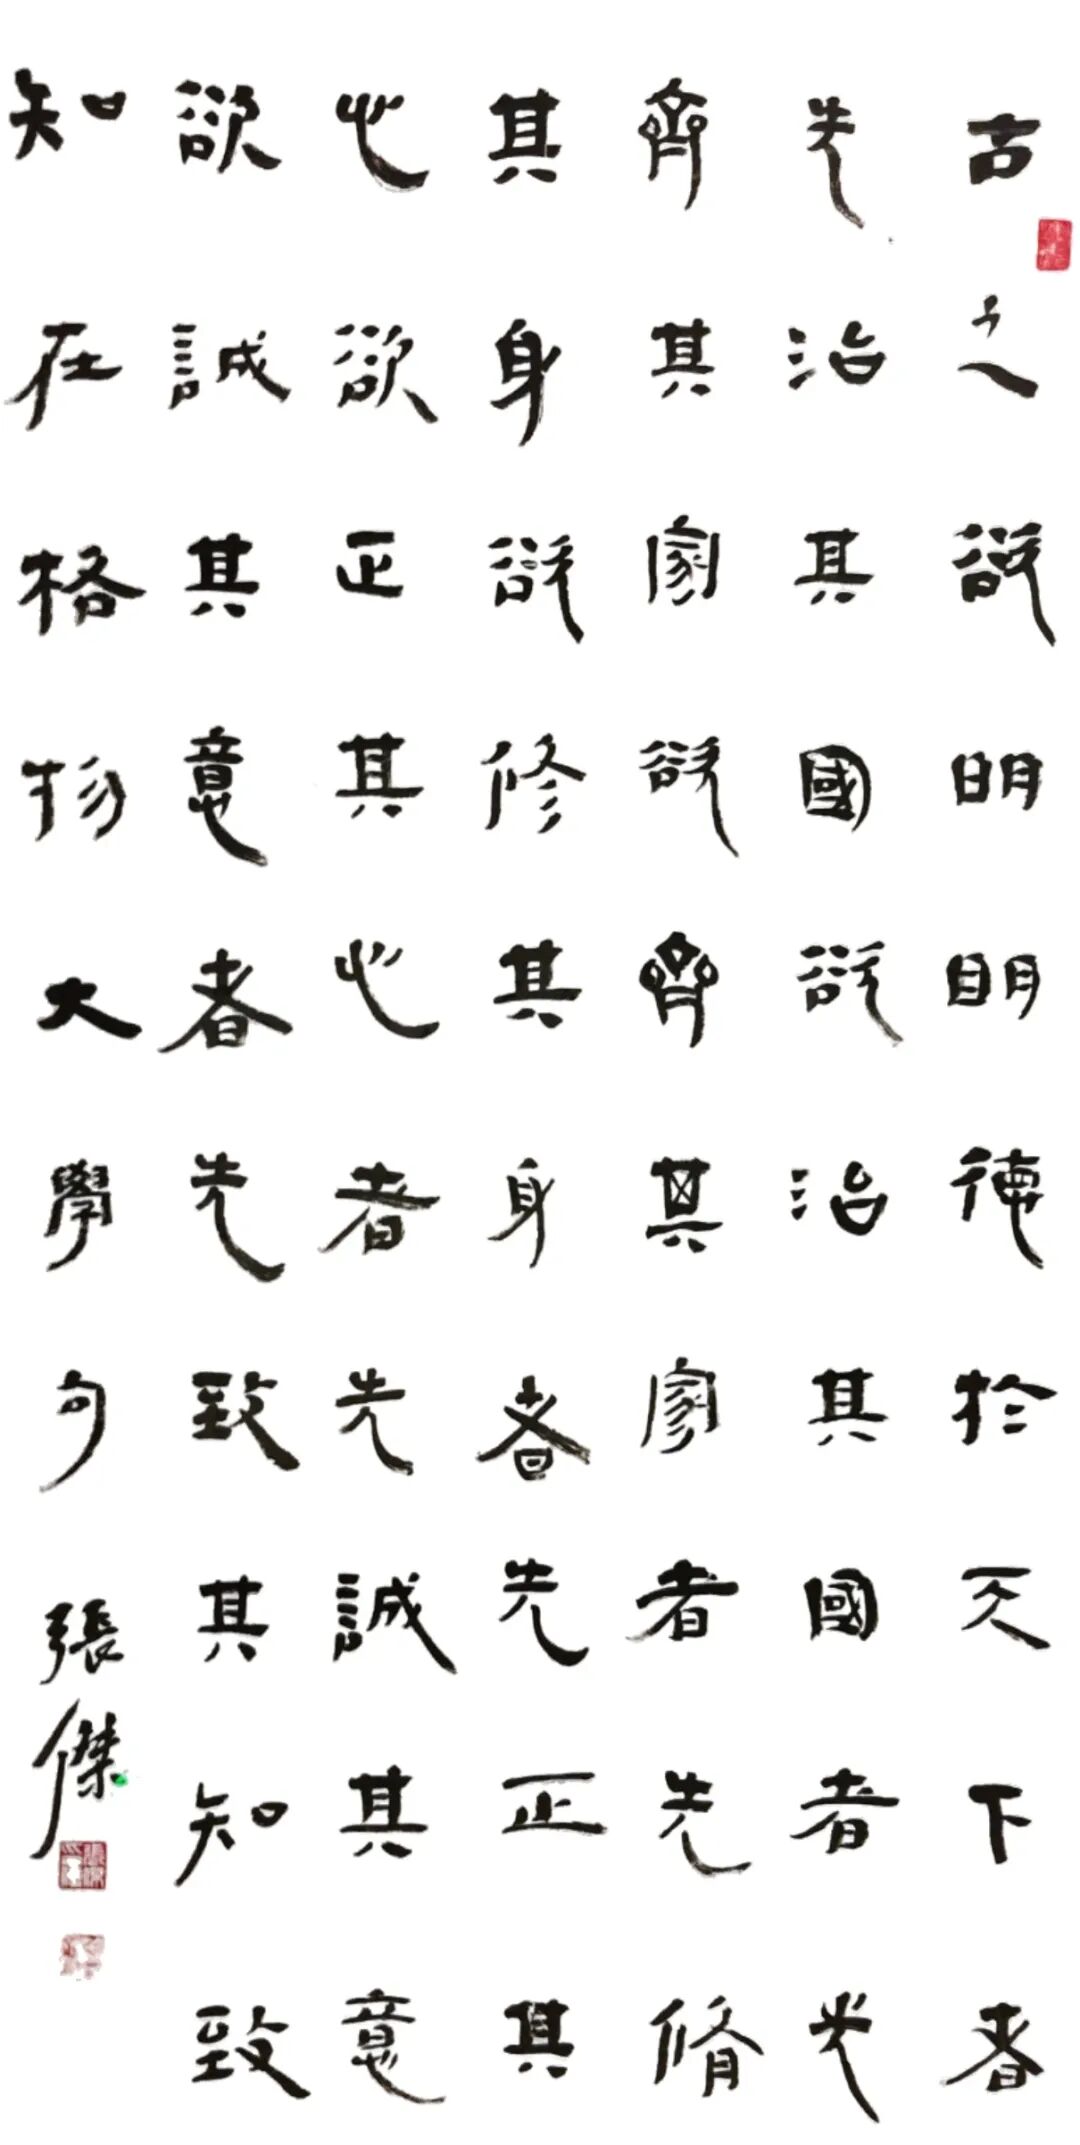 古之欲明明德於天下者
先治其國欲治其國者先
齊其家欲齊其家者先脩
其身欲修其身者先正其
心欲正其心者先誠其意
欲誠其意者先致其知致
知在格物大學句張傑